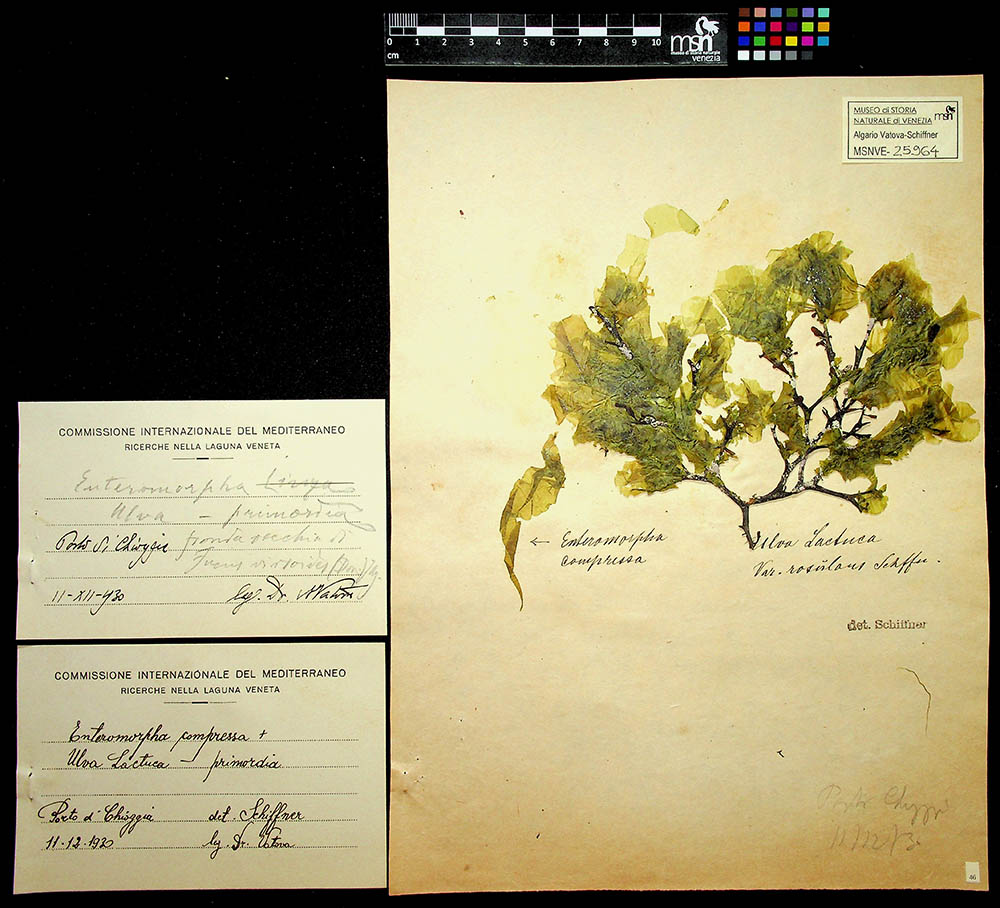 0 1 2 3 4 5 6 7 8 9 10
cm
msn
museo di storia naturale
venezia
MUSEO di STORIA
NATURALE di VENEZIA
msn
Algario Vatova-Schiffner
MSNVE- 25964
COMMISSIONE INTERNAZIONALE DEL MEDITERRANEO
RICERCHE NELLA LAGUNA VENETA
Enteromorpha Linza
Ulva — primordia
Porto di Chioggia fronda vecchia di
Fucus virsoides
11-XII-930 leg. Dr. AVatova
COMMISSIONE INTERNAZIONALE DEL MEDITERRANEO
RICERCHE NELLA LAGUNA VENETA
Enteromorpha compressa +
Ulva Lactuca — primordia
Porto di Chioggia det. Schiffner
11-12-1930 leg. Dr. Vatova
← Enteromorpha
compressa
Ulva Lactuca
Var. Schffn.
det. Schiffner
Porto Chiggi
11/12/30
46